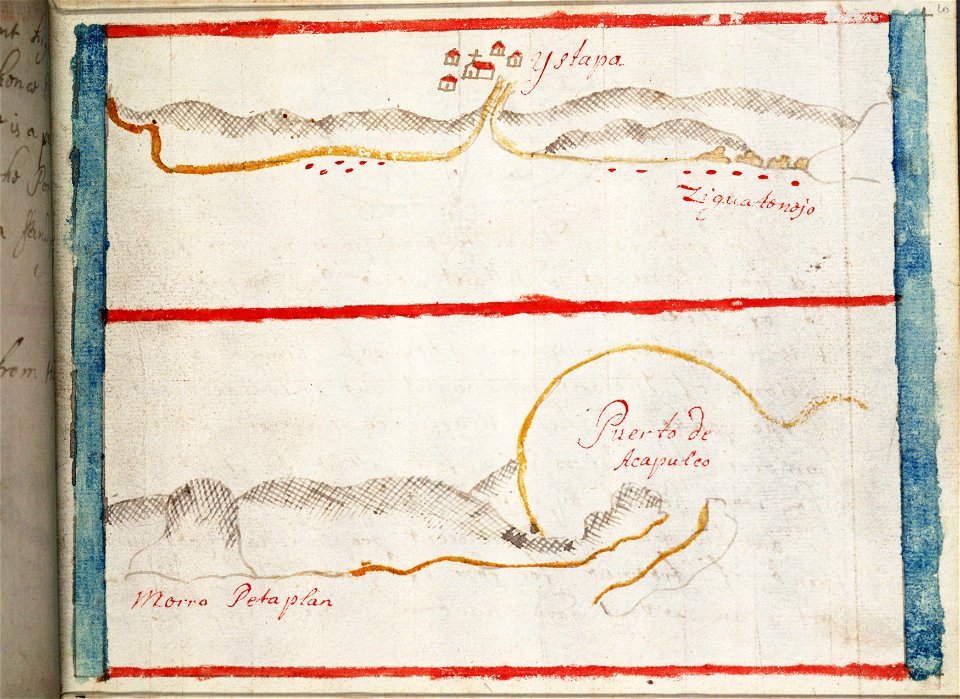 Ystapa
Ziguatenejo
Puerto de
Acapulco
Morro Petaplan
from